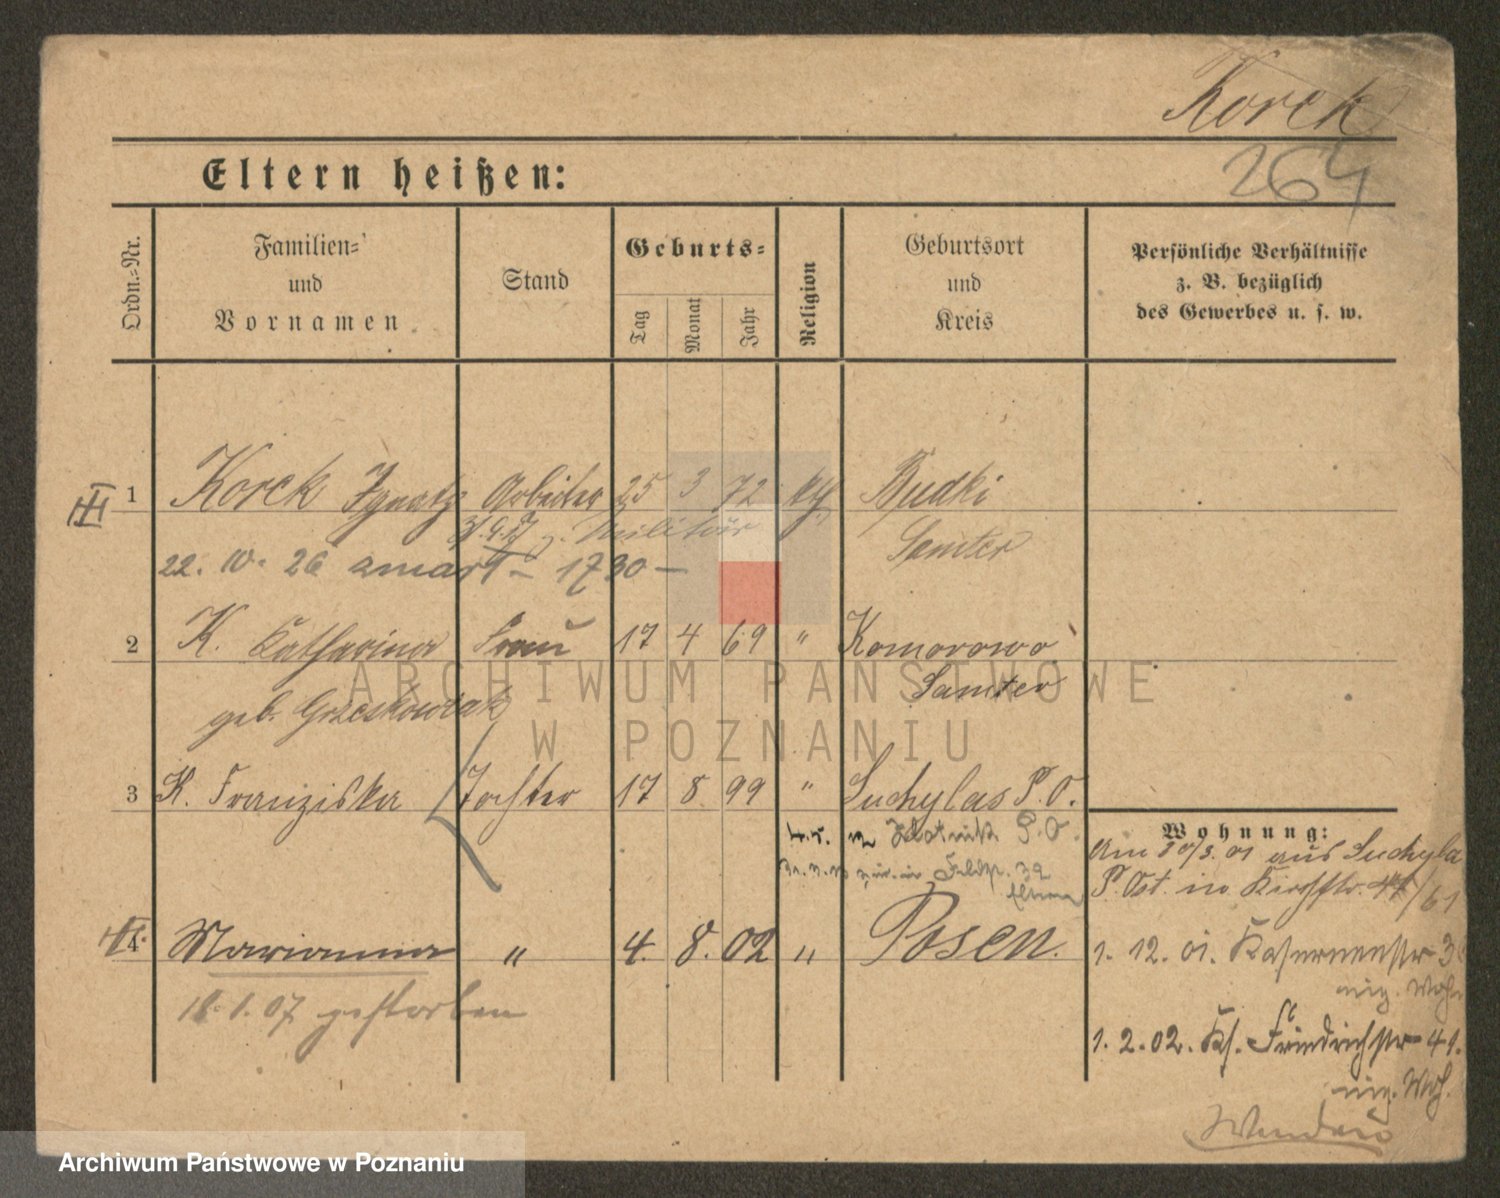 Korek
264
Eltern heißen:
Ordn.-Nr.
Familien- und Vornamen
Stand
Geburts-
Tag
Monat
Jahr
Religion
Geburtsort und Kreis
Persönliche Verhältnisse z. B. bezüglich des Gewerbes u. s. w.
1 Korek Ignatz Arbeiter 25 3 72 kth Budki
z. Militär Samter
22. IV. 26 zmarł – 1730 –
2 K. Katharina Frau 17 4 69 " Komorowo
geb. Grzeskowiak Samter
3 K. Franziska Tochter 17 8 99 " Suchylas P. O.
P. O.
Wohnung:
Am 30/3. 01 aus Suchylas
P. Ost. in Kirchstr. 41/61
4 Marianna " 4. 8. 02 " Posen.
1. 12. 01. Kasernenstr 3
18. 1. 07 gestorben
eig. Woh
1. 2. 02. Ks. Friedrichstr 41.
eig. Woh.
ARCHIWUM PAŃSTWOWE
W POZNANIU
Archiwum Państwowe w Poznaniu